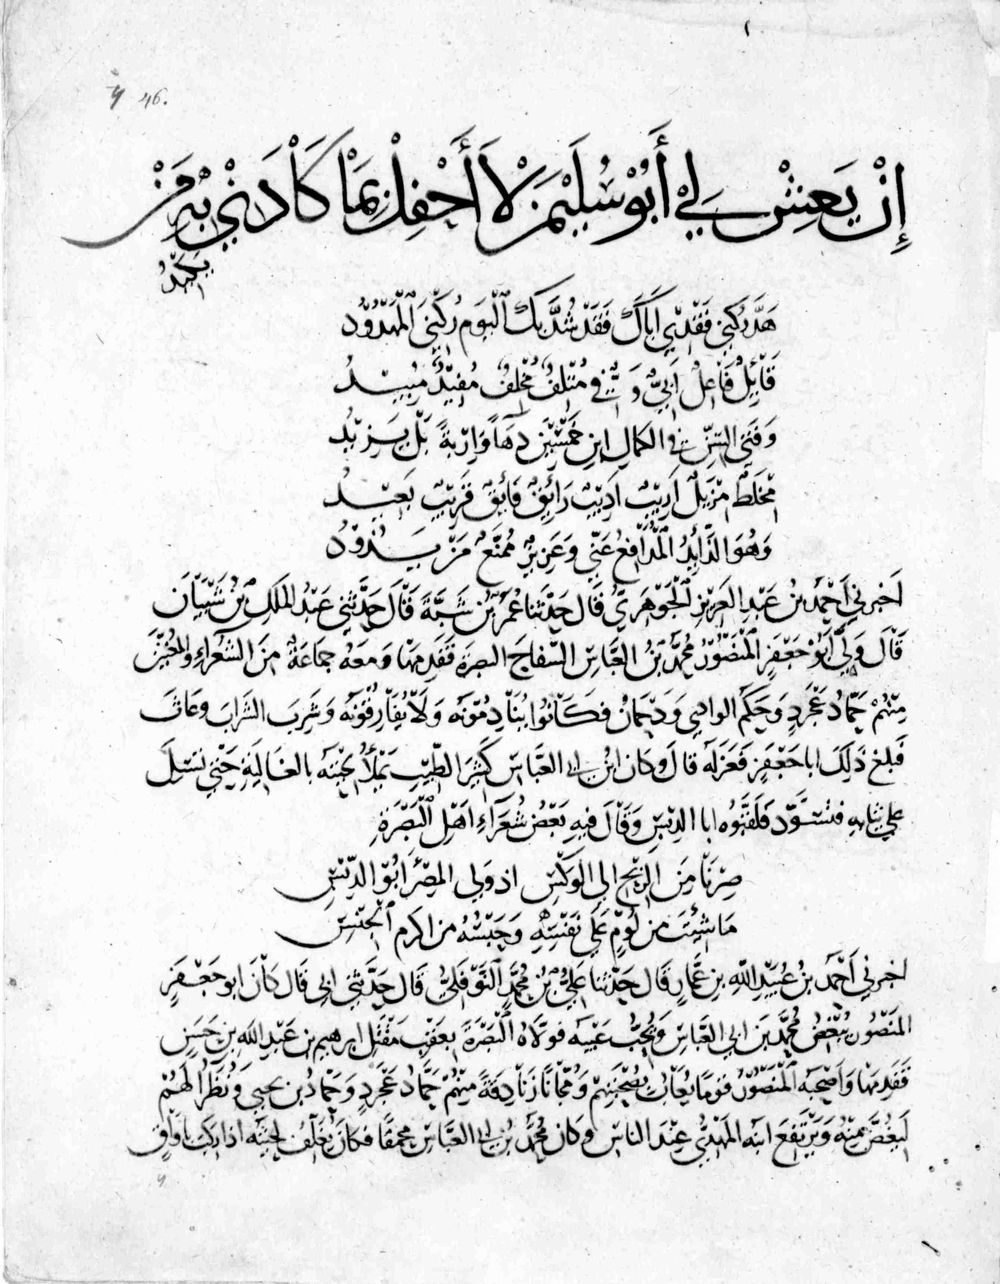 46.
إِنْ يَعِشْ لِي أَبُوْ سُلَيْمَنَ لَا أَحْفِلْ بِمَا كَادَنِيْ بِهِ مَنْ
يَكِيْدُ
هَدَّ رُكْنِي فَقْدِيْ اَبَاكَ فَقَدْ شُدَّ بِكَ ٱلْيَوْمَ رُكْنِيَ ٱلْمَهْدُوْدُ
قَائِلٌ فَاعِلٌ اَبِيٌّ وَفِيٌّ مُتْلِفٌ مُخْلِفٌ مُفِيْدٌ مُبِيْدُ
وَفَتَى السِّنِّ فى الكمال ابن خَمْسِيْنَ دَهَاءً وَاِرْبَةً بَلْ يَزِيْدُ
مِخْلَطٌ مِزْيَلٌ اَرِيْبٌ اَدِيْبٌ رَائِقٌ فَائِقٌ قَرِيْبٌ بَعِيْدُ
وَهُوَ الذَّائِدُ ٱلْمُدَافِعُ عَنِّي وَعَزِيْزٌ مُمَنَّعٌ مَنْ يَذُوْدُ
اَخبرني اَحْمَدُ بن عَبْدِ العَزِيْزِ ٱلْجَوْهَرِيُّ قَالَ حَدَّثَنَا عُمَرُ بْنُ شَبَّةَ قَالَ حَدَّثَنِي عَبْدُ الْمَلِكِ بْنُ شَيْبَانَ
قَالَ وَلَّى اَبُوْ جَعْفَرٍ ٱلْمَنْصُوْرُ مُحَمَّدَ بْنَ العَبَّاسِ السَّفَّاحِ البصرة فَقَدِمَهَا وَمَعَهُ جماعَةٌ مِنَ الشُعَراءِ وَالمُغَنِّيْنَ
مِنْهُمْ حَمَّادُ عَجْرَدٍ وَحَكَمُ الوَادِيّ وَدَحْمَانُ فَكَانُوا يُنَادِمُوْنَهُ وَلَا يُفَارِقُوْنَهُ وَشَرِبَ الشَّرابَ وعَاثَ
فَبَلَغَ ذَلِكَ ابَا جَعْفَرٍ فَعَزَلَهُ قالَ وَكَانَ ابن ابي العَبَّاسِ كَثِيْرَ الطِّيْبِ يَمْلَأُ لِحْيَتَهُ بالغَالِيَةِ حَتَّى تَسِيْلَ
على ثيابه فتَسْوَدَّ فَلَقَّبُوهُ ابا الدِّبْسِ وَقَالَ فِيهِ بَعْضُ شُعَرَآءِ اَهْلِ ٱلْبَصْرَةِ
صِرْنَا مِنَ الرِّبْحِ الى الوَكْسِ اذ وَلِيَ المِصْرَ اَبُوْ الدِّبْسِ
مَا شِئْتَ مِنْ لُؤمٍ عَلَى نَفْسِهِ وَجِنْسُهُ من اكرم ٱلْجِنْسِ
اخبرني اَحْمَدُ بن عُبَيْدِ اللّهِ بن عَمَّارٍ قَالَ حَدَّثَنَا عَلِيُّ بْنُ مُحَمَّدٍ ٱلنَّوْفَلِيُّ قَالَ حَدَّثَنِي ابي قَالَ كَانَ ابو جَعْفَرٍ
المَنْصُورُ يُبْغِضُ مُحَمَّدَ بن ابي العَبَّاسِ وَيُحِبُّ عَيْبَه فولاهُ ٱلْبَصْرَةَ بِعَقْبِ مَقْتَلِ ابرهيم بن عَبْدِ اللهِ بن حَسَنٍ
فَقَدِمَهَا وَاَصْحَبَهُ ٱلْمَنْصُوْرُ قَوْمًا يُعَابُ بِصُحْبَتِهِمْ وَمُجَّانًا زَنَادِقَةً مِنْهُمْ حَمَّادُ عَجْرَدٍ وَحَمَّادُ بن يحيى وَنُظَرَاءُ لَهُمْ
لِيُغَضَّ مِنْهُ وَيَرْتَفِعَ ابنه المَهْدِيُّ عِنْدَ الناسِ وكان مُحَمَّدُ بْنُ ابي العَبَّاسِ مُحَمَّقًا فكان يُغَلِّفُ لِحْيَتَهُ اذا رَكِبَ بِأَوَاقٍ